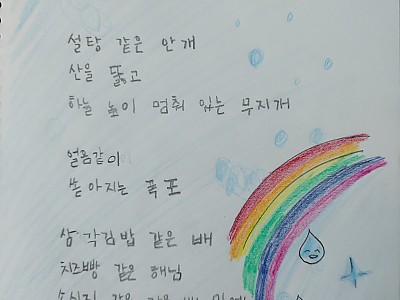 설탕 같은 안개
산을 뚫고
하늘 높이 멈춰 있는 무지개
얼음같이
쏟아지는 폭포
삼각김밥 같은 배
치즈빵 같은 해님